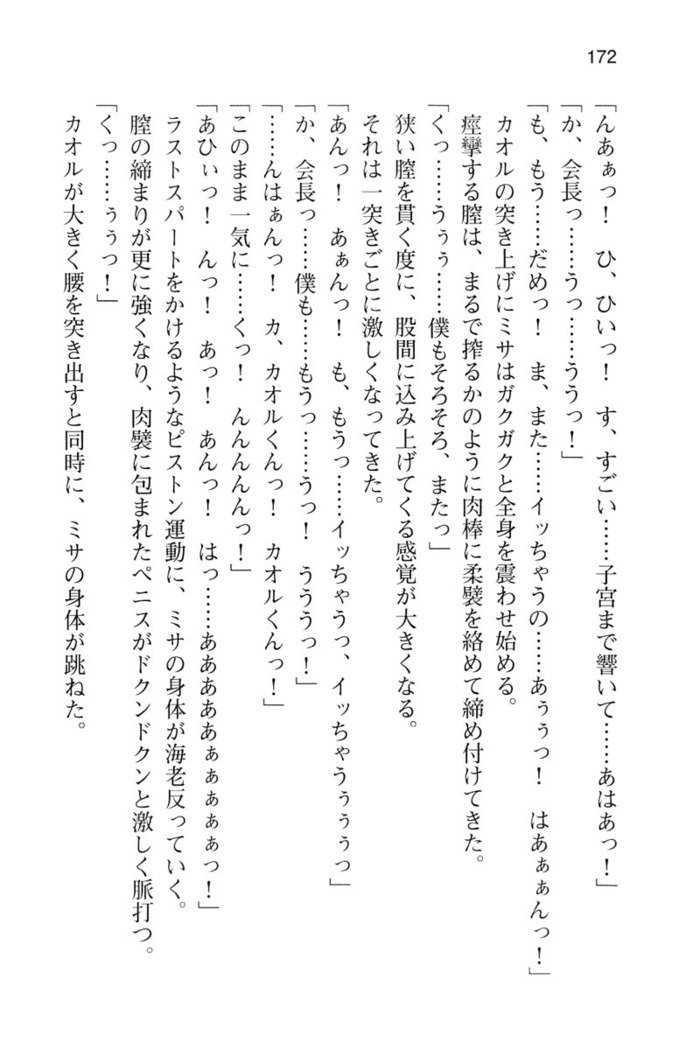 172
「んあぁっ！　ひ、ひいっ！　す、すごい……子宮まで響いて……あはあっ！」
「か、会長っ……うっ……ううっ！」
「も、もう……だめっ！　ま、また……イッちゃうの……あぅぅっ！　はあぁぁんっ！」
カオルの突き上げにミサはガクガクと全身を震わせ始める。
痙攣する膣は、まるで搾るかのように肉棒に柔襞を絡めて締め付けてきた。
「くっ……うぅぅ……僕もそろそろ、またっ」
狭い膣を貫く度に、股間に込み上げてくる感覚が大きくなる。
それは一突きごとに激しくなってきた。
「あんっ！　あぁんっ！　も、もうっ……イッちゃうっ、イッちゃうぅぅぅっ」
「か、会長っ……僕も……もうっ……うっ！　うううっ！」
「……んはぁんっ！　カ、カオルくんっ！　カオルくんっ！」
「このまま一気に……くっ！　んんんんんっ！」
「あひぃっ！　んっ！　あっ！　あんっ！　はっ……ああああああぁぁぁぁぁっ！」
ラストスパートをかけるようなピストン運動に、ミサの身体が海老反っていく。
膣の締まりが更に強くなり、肉襞に包まれたペニスがドクンドクンと激しく脈打つ。
「くっ……ぅぅっ！」
カオルが大きく腰を突き出すと同時に、ミサの身体が跳ねた。